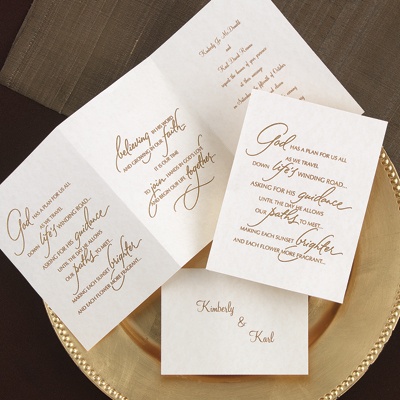 God HAS A PLAN FOR US ALL
AS WE TRAVEL
DOWN life's WINDING ROAD...
ASKING FOR HIS guidance
UNTIL THE DAY HE ALLOWS
OUR paths TO MEET...
MAKING EACH SUNSET brighter
AND EACH FLOWER MORE FRAGRANT...
believing IN HIS WORD
AND GROWING IN OUR faith.
IT IS OUR TIME
TO join HANDS IN GOD'S LOVE
AND BEGIN OUR LIFE together
Kimberly Jo McDonald
and
Karl David Roman
request the honour of your presence
at their marriage
on Saturday, the fourteenth of October
God HAS A PLAN FOR US ALL
AS WE TRAVEL
DOWN life's WINDING ROAD...
ASKING FOR HIS guidance
UNTIL THE DAY HE ALLOWS
OUR paths TO MEET...
MAKING EACH SUNSET brighter
AND EACH FLOWER MORE FRAGRANT...
Kimberly
&
Karl